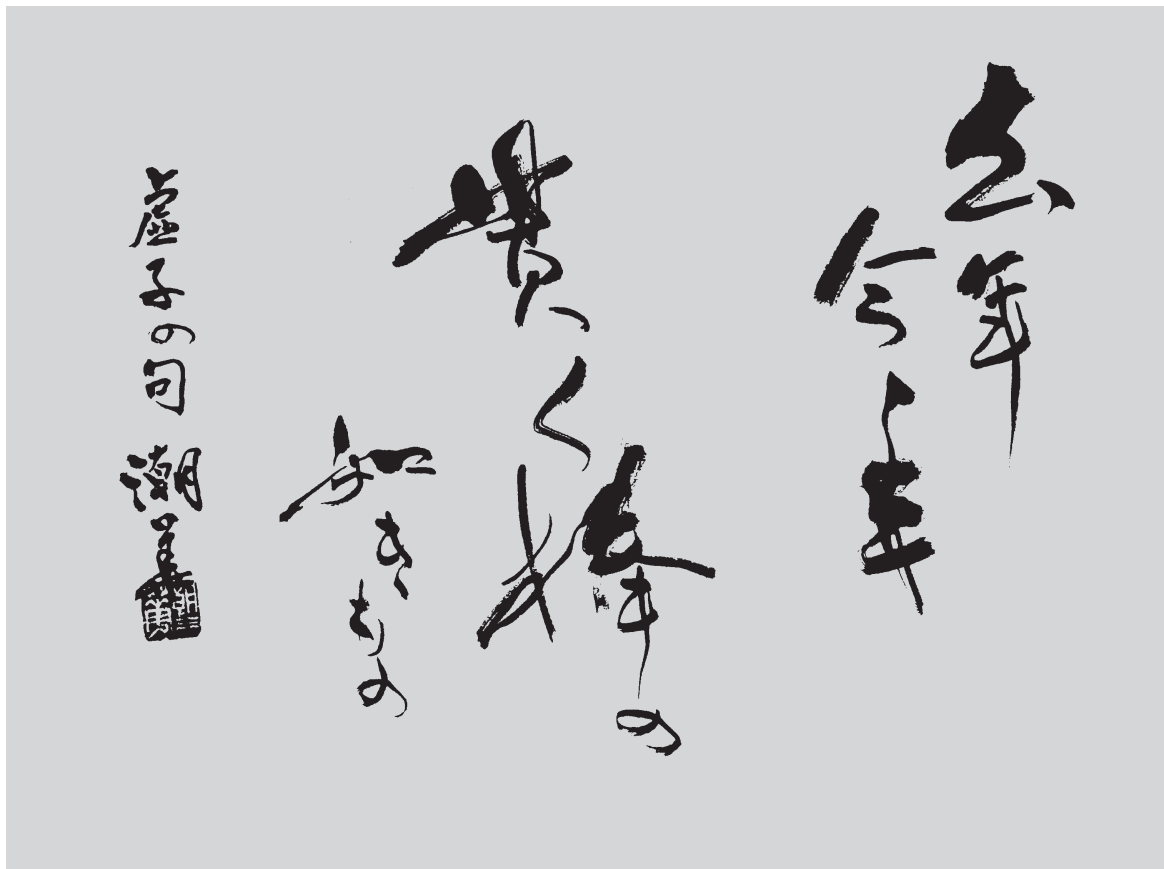 去年
今年
貫く
棒の
如き
もの
虚子の句 潮